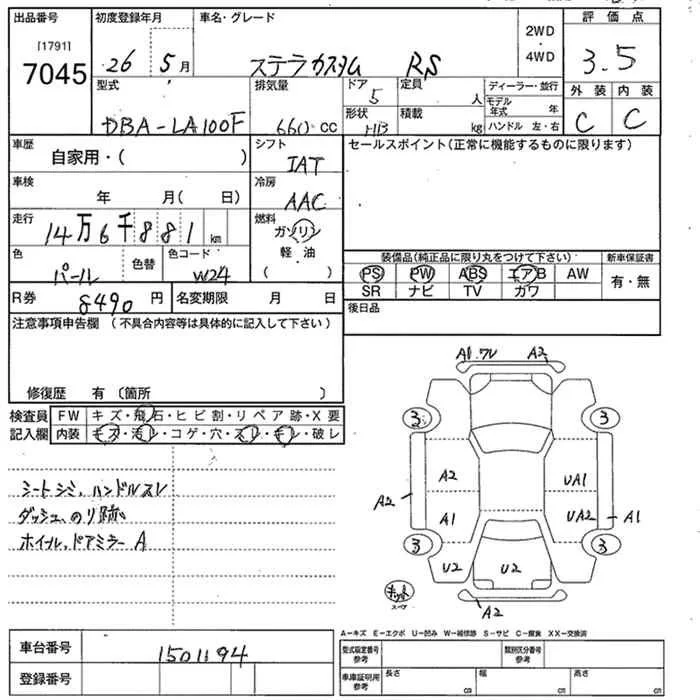 出品番号 初度登録年月 車名・グレード 2WD・4WD 評価点
[1791]
7045 26 5月 ステラカスタム RS 3.5
型式 排気量 ドア 5 定員 人 ディーラー・並行 外装 内装
DBA-LA100F 660cc 形状 HB 積載 kg モデル年式 年 ハンドル 左・右 C C
車歴 自家用・( ) シフト IAT セールスポイント(正常に機能するものに限ります)
車検 年 月( 日) 冷房 AAC
走行 14万6千881 km 燃料 ガソリン・軽・油 ( )
色 パール 色替 色コード W24
装備品(純正品に限り丸をつけて下さい) 新車保証書
PS PW ABS エアB AW 有・無
SR ナビ TV ガワ
R券 8490円 名変期限 月 日 後日品
注意事項申告欄(不具合内容等は具体的に記入して下さい)
修復歴 有(箇所 )
検査員記入欄 FW キズ・飛石・ヒビ割・リペア跡・X要
内装 キズ・汚レ・コゲ・穴・スレ・キレ・破レ
シートシミ、ハンドルスレ
ダッシュ、のり跡
ホイル、ドアミラーA
A1.ワレ A2
3 3
A2 UA1
A2 A1 UA2 A1
3 3
U2 U2 U2
キット
スペア
A2
A-キズ E-エクボ U-凹み W-補修跡 S-サビ C-腐食 XX-交換済
車台番号 1501194 型式指定番号 参考 類別区分番号 参考
登録番号 車庫証明用 参考 長さ cm 幅 cm 高さ cm